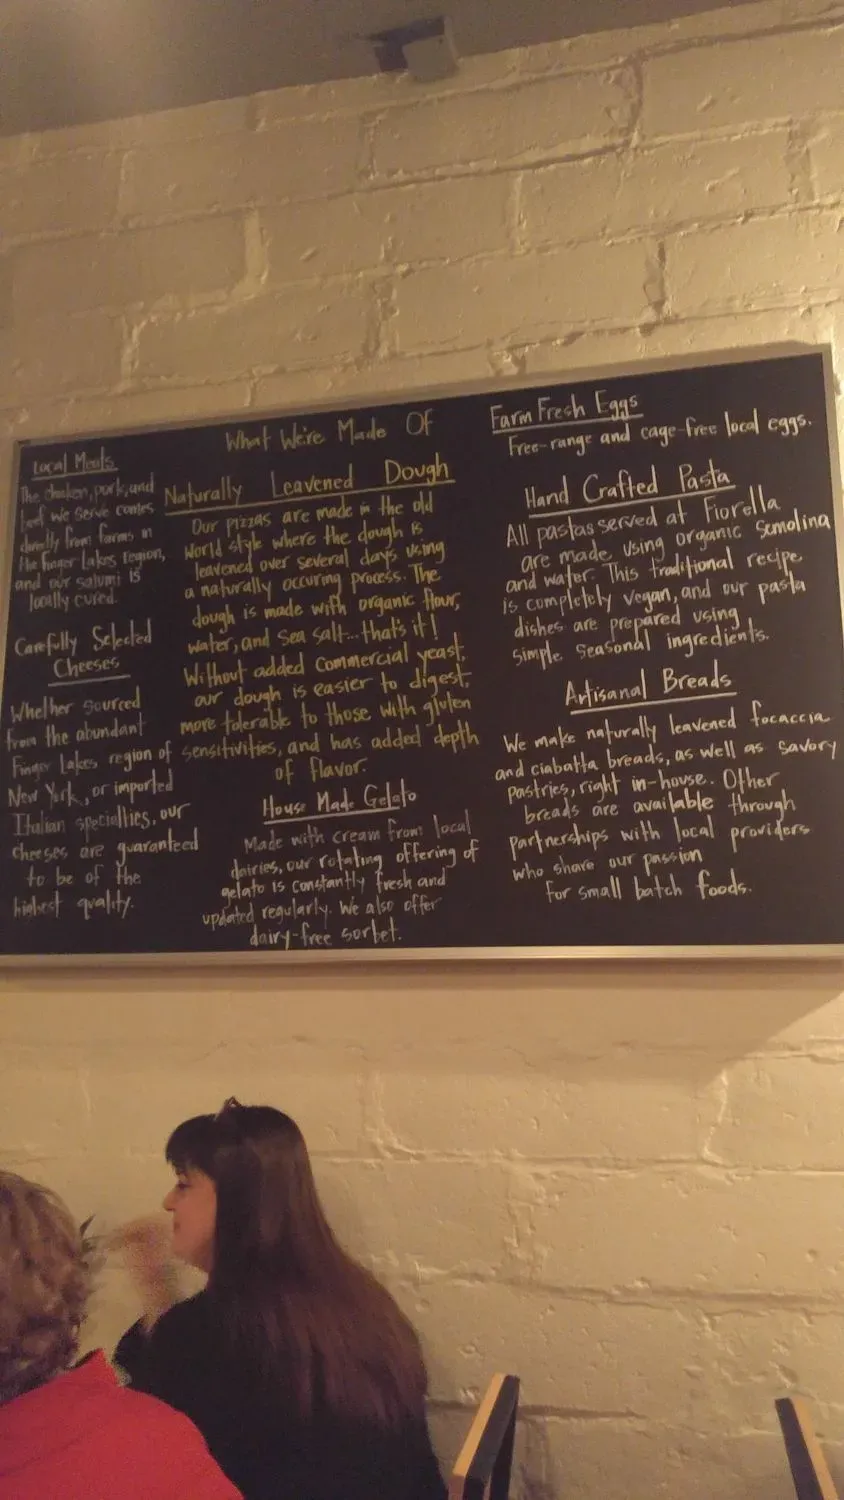 What We're Made Of
Local Meats
The chicken, pork, and
beef we serve comes
directly from farms in
the Finger Lakes region,
and our salumi is
locally cured.
Carefully Selected
Cheeses
Whether sourced
from the abundant
Finger Lakes region of
New York, or imported
Italian specialties, our
cheeses are guaranteed
to be of the
highest quality.
Naturally Leavened Dough
Our pizzas are made in the old
world style where the dough is
leavened over several days using
a naturally occuring process. The
dough is made with organic flour,
water, and sea salt... that's it!
Without added commercial yeast,
our dough is easier to digest,
more tolerable to those with gluten
sensitivities, and has added depth
of flavor.
House Made Gelato
Made with cream from local
dairies, our rotating offering of
gelato is constantly fresh and
updated regularly. We also offer
dairy-free sorbet.
Farm Fresh Eggs
Free-range and cage-free local eggs.
Hand Crafted Pasta
All pastas served at Fiorella
are made using organic semolina
and water. This traditional recipe
is completely vegan, and our pasta
dishes are prepared using
simple seasonal ingredients.
Artisanal Breads
We make naturally leavened focaccia
and ciabatta breads, as well as savory
pastries, right in-house. Other
breads are available through
partnerships with local providers
who share our passion
for small batch foods.